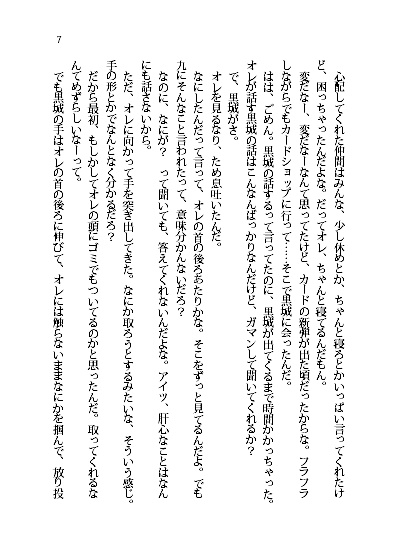 7
心配してくれた仲間はみんな、少し休めとか、ちゃんと寝ろとかいっぱい言ってくれたけ
ど、困っちゃったんだよな。だってオレ、ちゃんと寝てるんだもん。
変だなー、変だなーなんて思ってたけど、カードの新弾が出た頃だったからな。フラフラ
しながらでもカードショップに行って……そこで黒城に会ったんだ。
はは、ごめん。黒城の話するって言ってたのに、黒城が出てくるまで時間かかっちゃった。
オレが話す黒城の話はこんなんばっかりなんだけど、ガマンして聞いてくれるか？
で、黒城がさ。
オレを見るなり、ため息吐いたんだ。
なにしたんだって言って、オレの首の後ろあたりかな。そこをずっと見てるんだよ。でも
九にそんなこと言われたって、意味分かんないだろ？
なのに、なにが？　って聞いても、答えてくれないんだよな。アイツ、肝心なことはなん
にも話さないから。
ただ、オレに向かって手を突き出してきた。なにか取ろうとするみたいな、そういう感じ。
手の形とかでなんとなく分かるだろ？
だから最初、もしかしてオレの頭にゴミでもついてるのかと思ったんだ。取ってくれるな
んてめずらしいなーって。
でも黒城の手はオレの首の後ろに伸びて、オレには触らないままなにかを掴んで、放り投